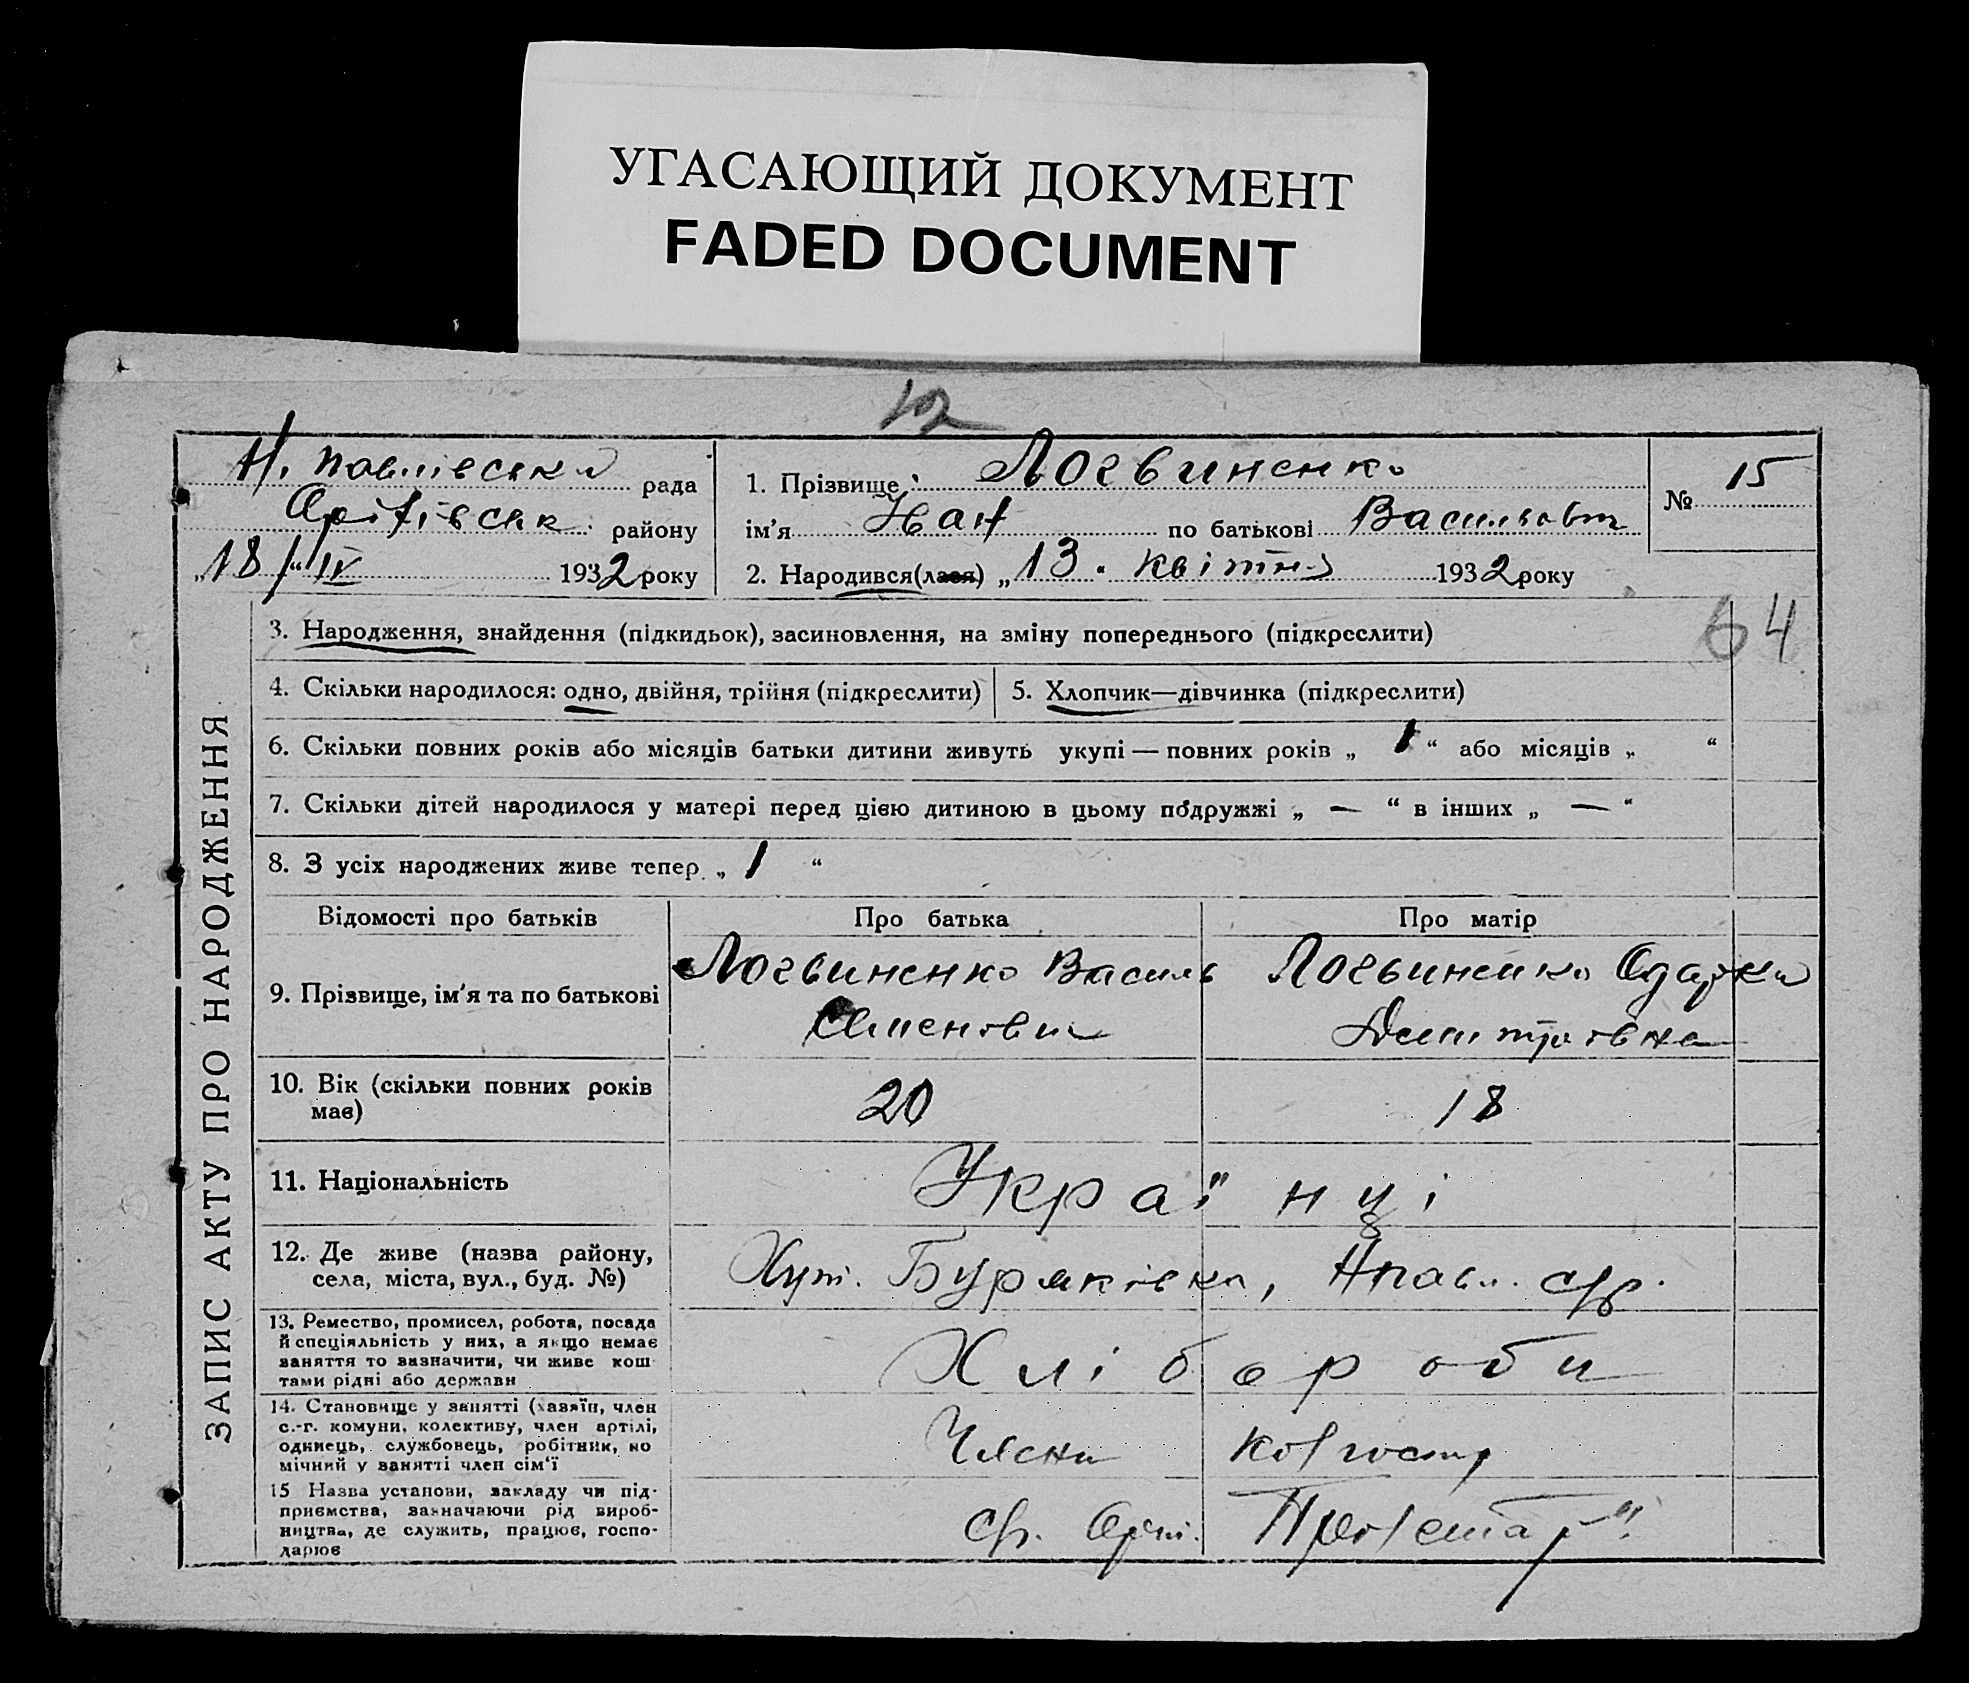 УГАСАЮЩИЙ ДОКУМЕНТ
FADED DOCUMENT
12
Н. Павлівська рада
району
„18/“ IV 1932 року
1. Прізвище Логвиненко
ім'я Іван по батькові Васильович
2. Народився(лася) „13“ квітня 1932 року
№ 15
64
ЗАПИС АКТУ ПРО НАРОДЖЕННЯ
3. Народження, знайдення (підкидьок), засиновлення, на зміну попереднього (підкреслити)
4. Скільки народилося: одно, двійня, трійня (підкреслити)
5. Хлопчик—дівчинка (підкреслити)
6. Скільки повних років або місяців батьки дитини живуть укупі — повних років „ 1 “ або місяців „ “
7. Скільки дітей народилося у матері перед цією дитиною в цьому подружжі „ — “ в інших „ — “
8. З усіх народжених живе тепер „ 1 “
Відомості про батьків
Про батька
Про матір
9. Прізвище, ім'я та по батькові
Логвиненко Василь
Семенович
Логвиненко Одарка
Дмитровна
10. Вік (скільки повних років
має)
20
18
11. Національність
Українці
12. Де живе (назва району,
села, міста, вул., буд. №)
Хут. Буряківка, Нпавл. с/р.
13. Ремество, промисел, робота, посада
й спеціяльність у них, а якщо немає
заняття то визначити, чи живе кош
тами рідні або держави
Хлібороби
14. Становище у занятті (хазяїн, член
с.-г. комуни, колективу, член артілі,
одинець, службовець, робітник, по
мічний у занятті член сім'ї
Члени колгоспу
15 Назва установи, закладу чи під-
приємства, зазначаючи рід вироб-
ництва, де служить, працює, госпо-
дарює
Арт. Пролетар“.